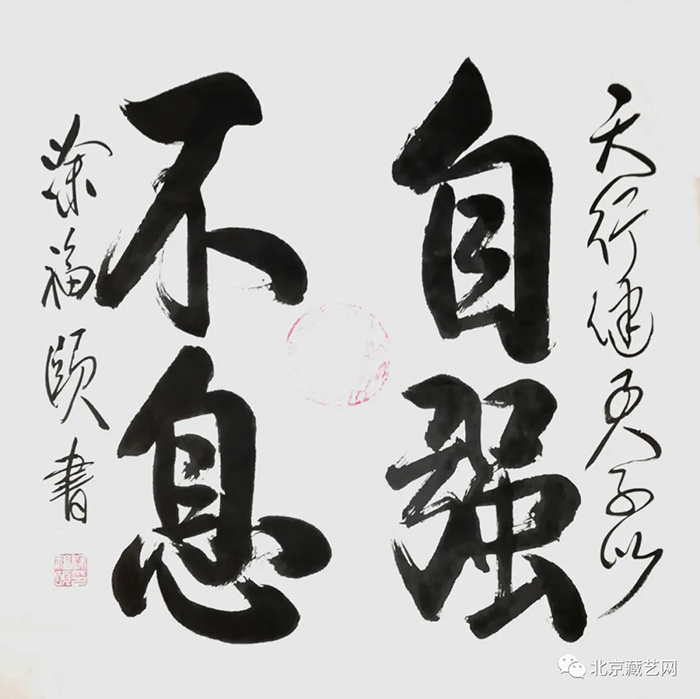 天行健君子以
自强
不息
福颐书
北京藏艺网